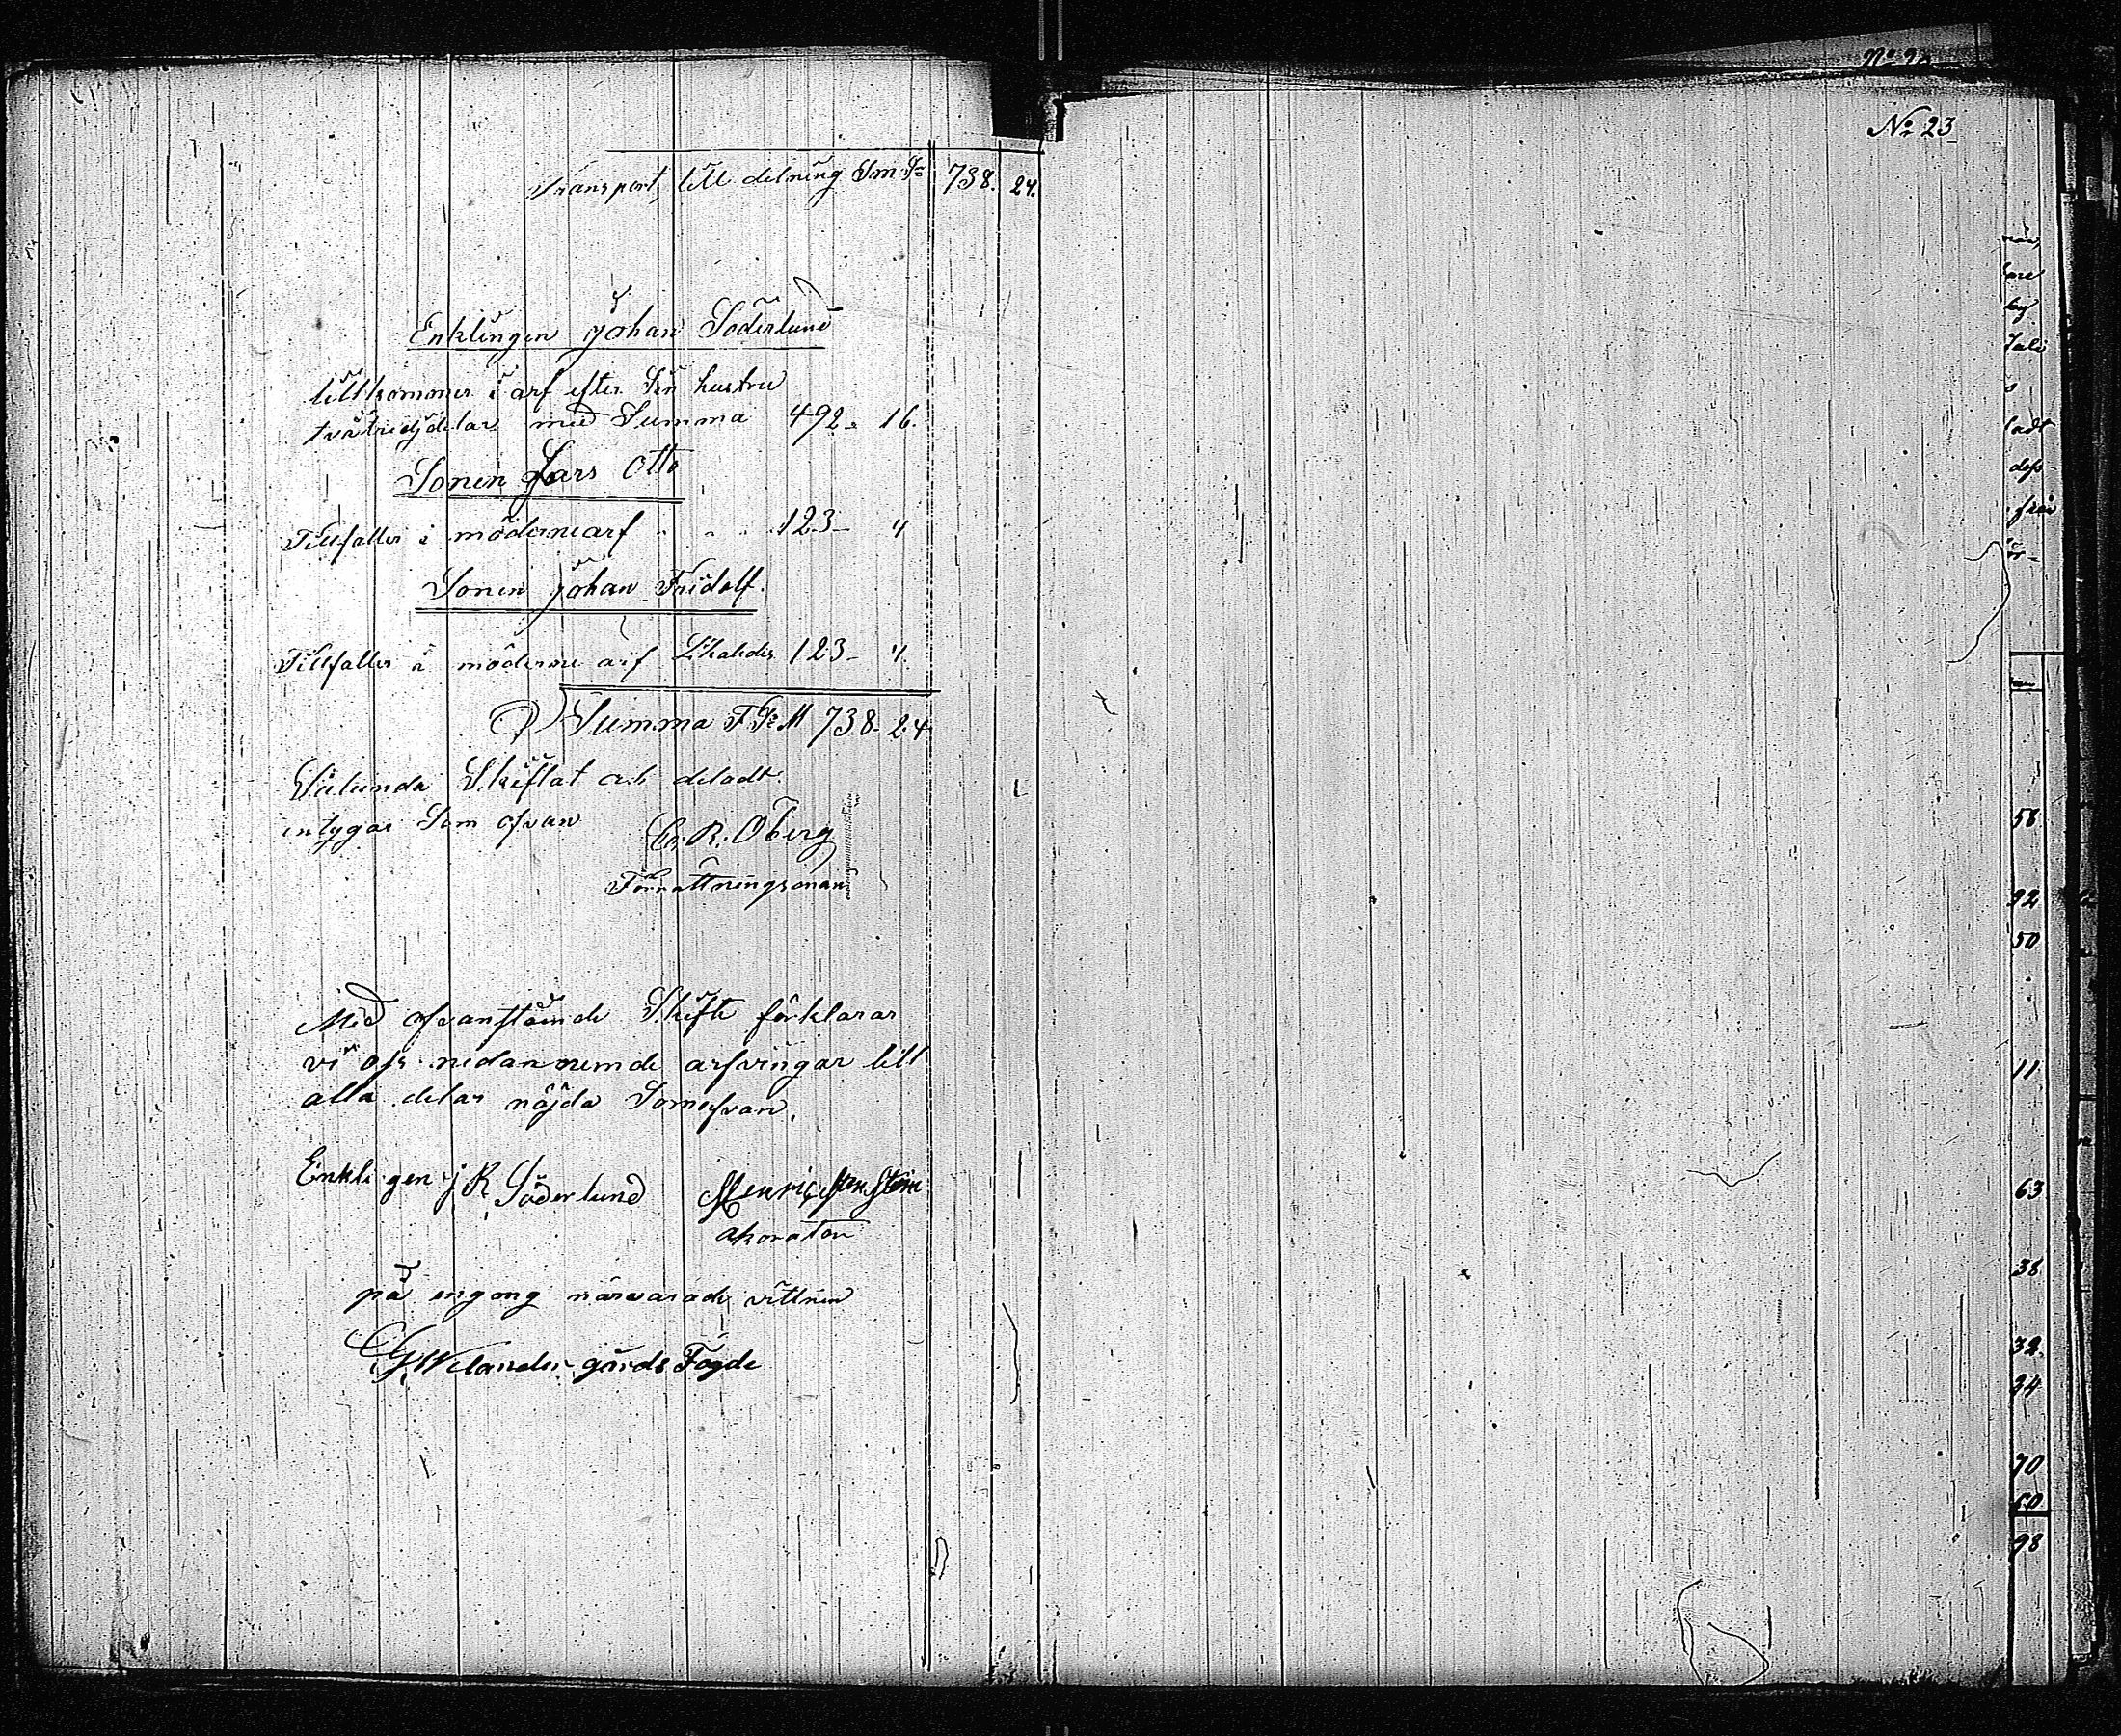 Transport, till delning Sm Fr 738. 24.
Enklingen Johan Söderlund
tillkommer i arf efter Sin hustru
tvåtriedjdelar med Summa 492. 16.
Sonen Lars Otto
Tillfaller i möderne arf " " " 123 - 4
Sonen Johan Fridolf.
Tillfaller i möderne arf Likaledes 123 - 4.
Summa F. M 738. 24
Sålunda Skiftat och deladt.
intygar Som ofvan
C. R. Öberg
Förrättningsman
Med ofvanstående Skifte förklarar
vi ofs nedannemde arfvingar till
alla delar nöjda Somofvan.
Enkligen J R Söderlund Henric
på engong närvarade vittnen
Welander gårds Fogde
No 23
58
92
50
11
63
38
32.
34
70
50
98